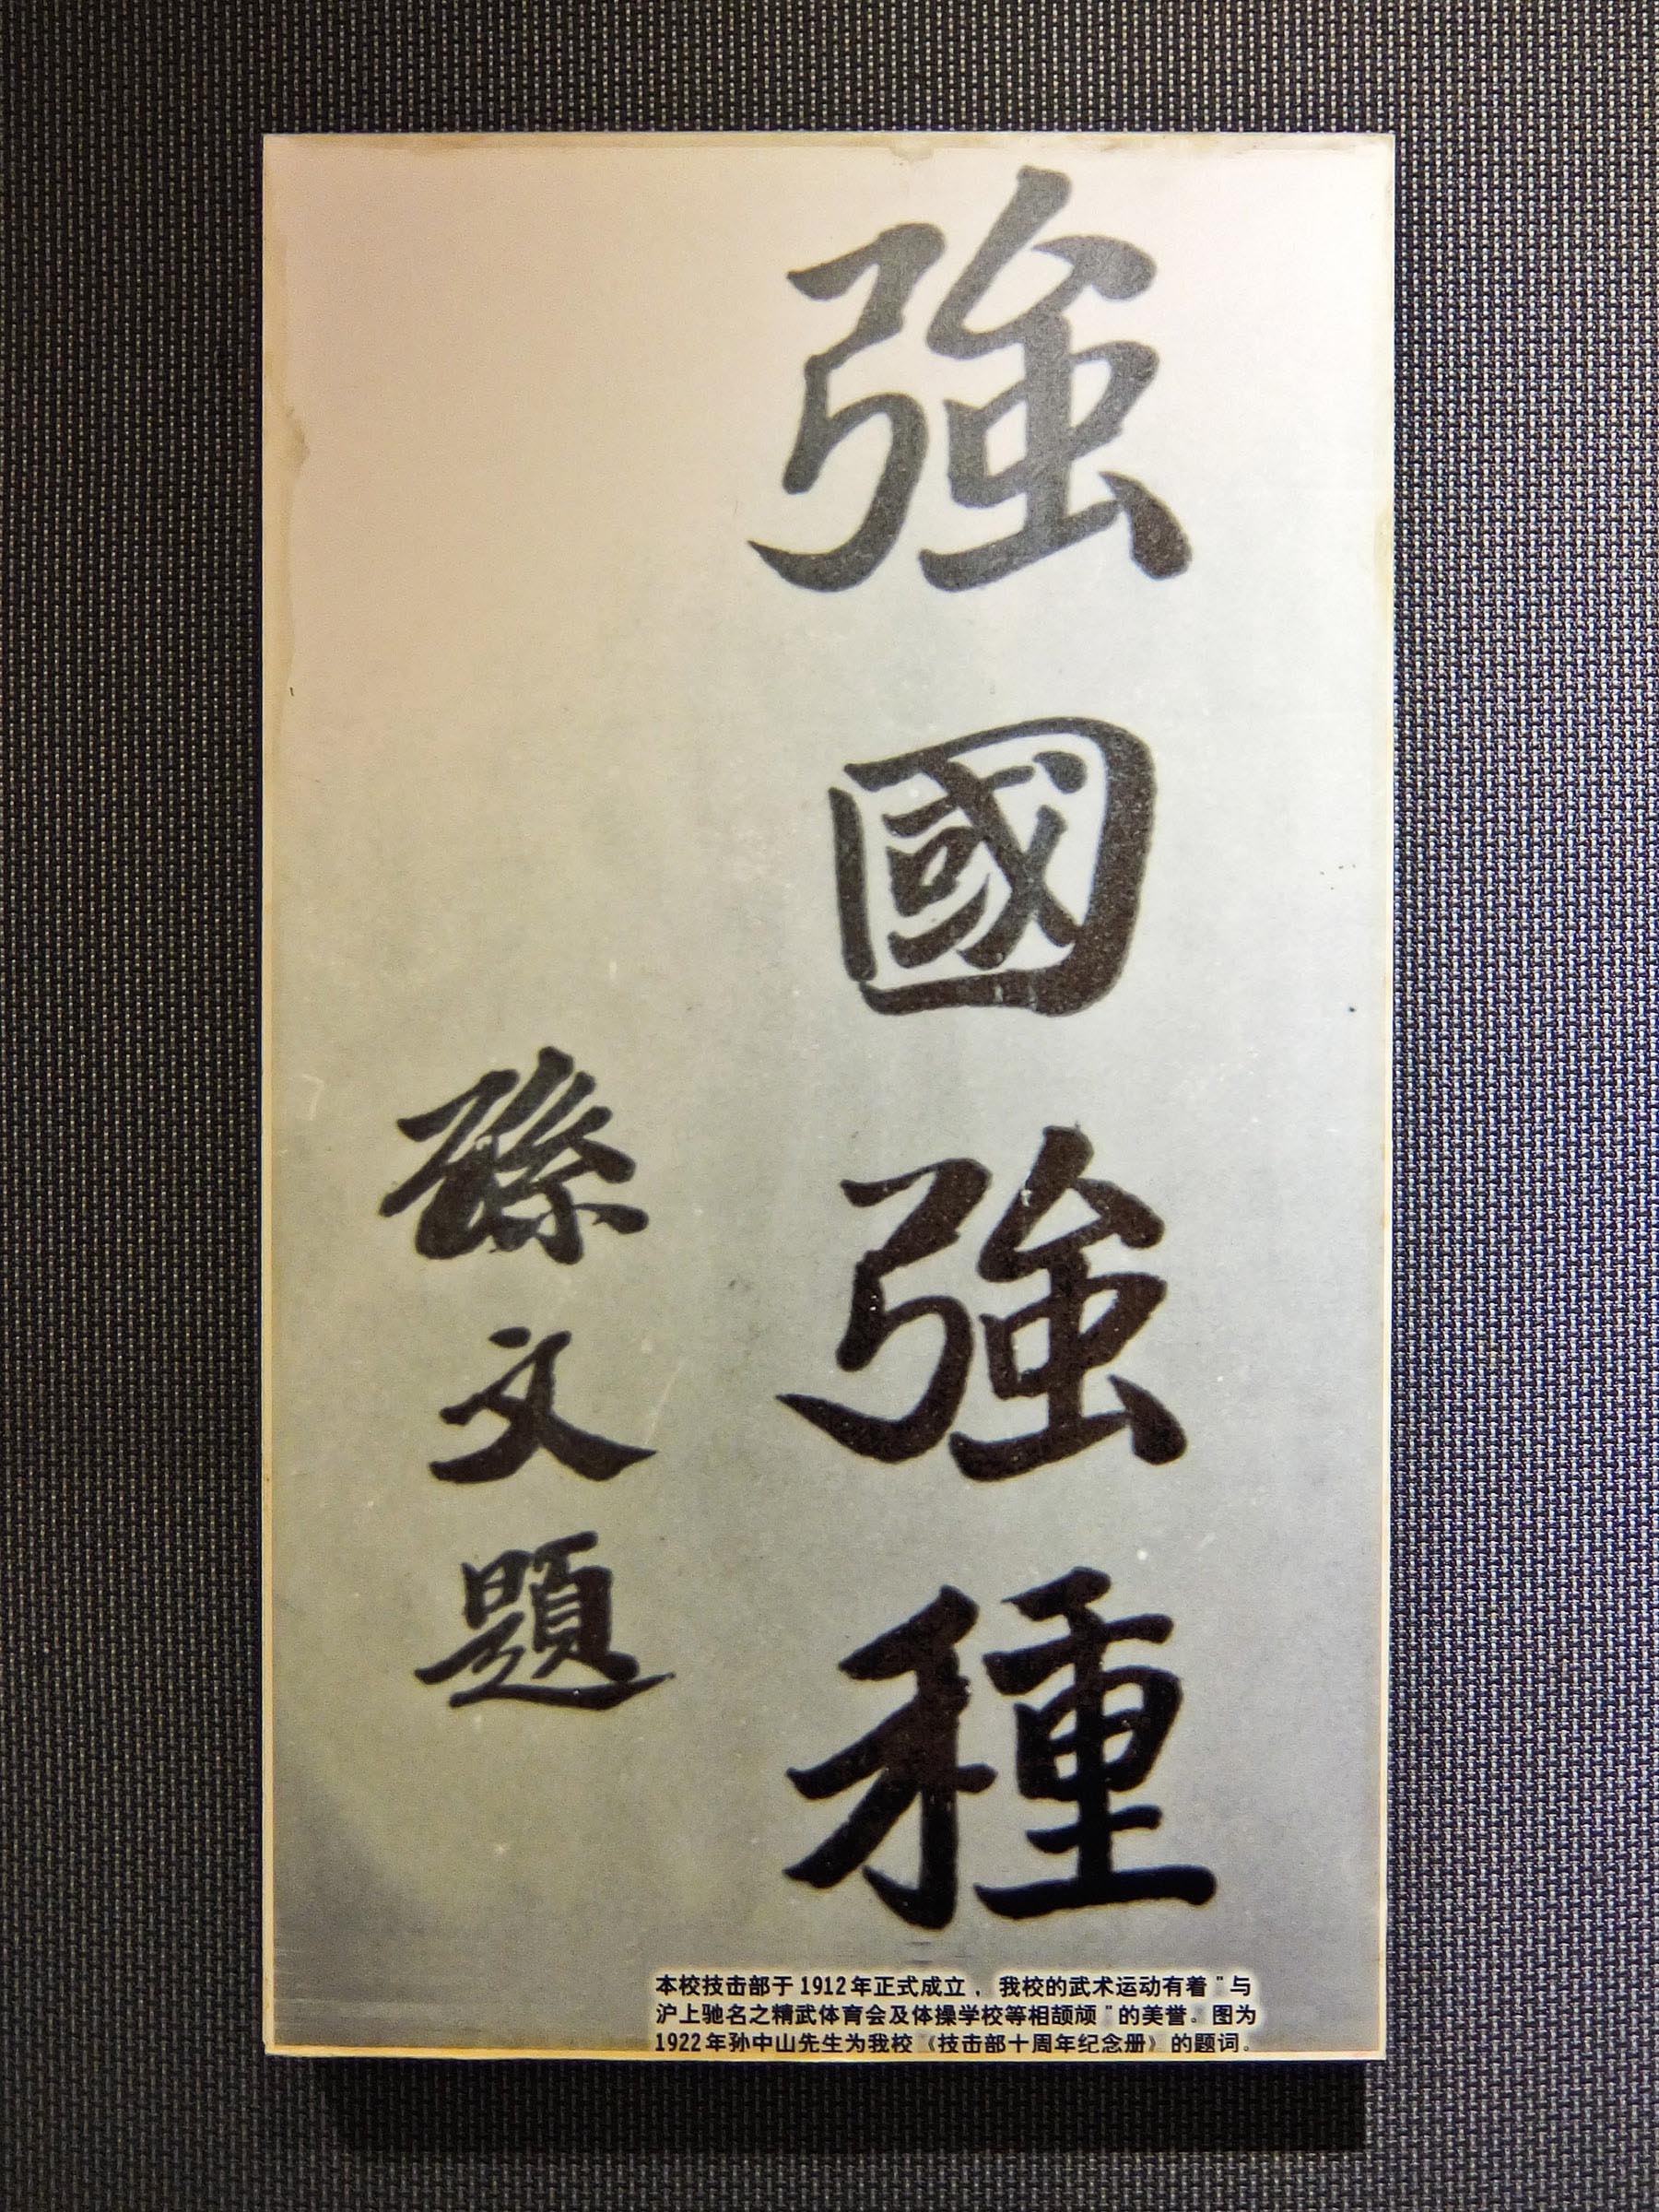 強國強種
孫文題
本校技击部于1912年正式成立，我校的武术运动有着"与
沪上驰名之精武体育会及体操学校等相颉颃"的美誉。图为
1922年孙中山先生为我校《技击部十周年纪念册》的题词。